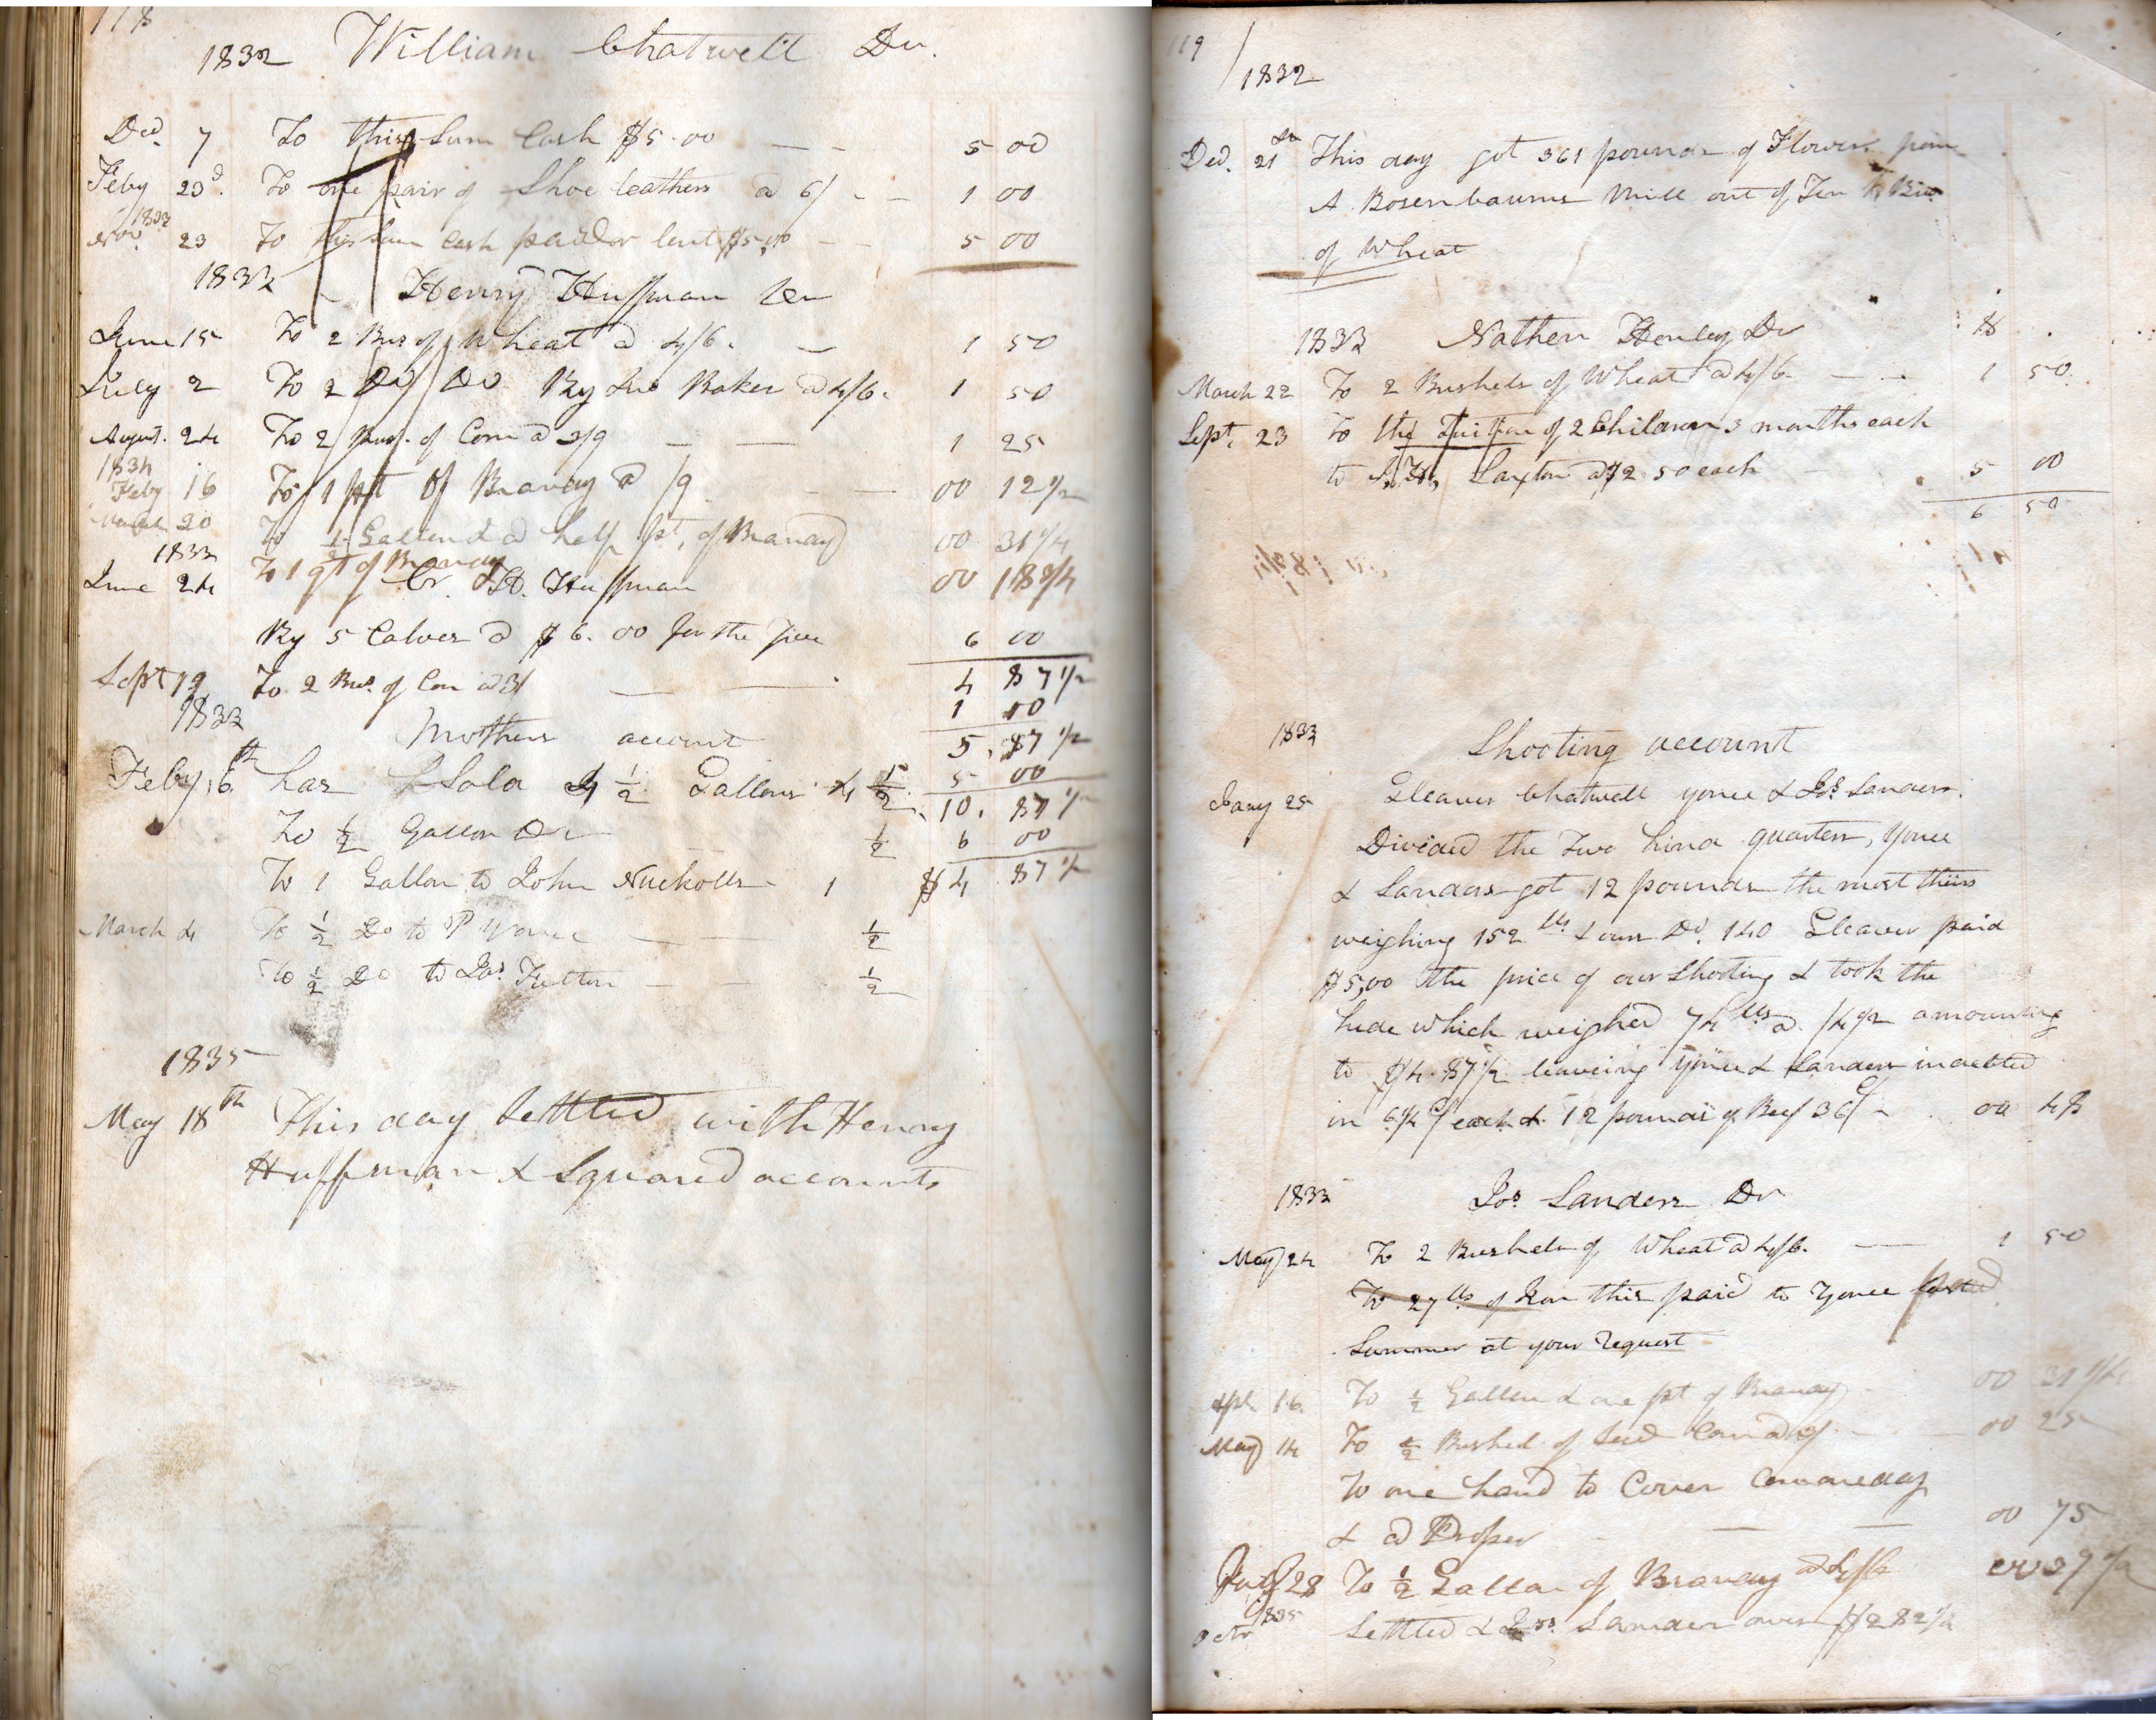 118
1832 William Chatwell Dr.
Decr. 7 To this Sum Cash $5.00 5 00
Feby 23d. To one pair of Shoe leathers @ 6/ 1 00
1833
Novr. 23 To this Sum Cash paid or lent $5,00 5 00
1833 Henry Huffman Dr
June 15 To 2 Bus of Wheat @ 4/6. 1 50
July 2 To 2 Do Do By Jno Baker @ 4/6. 1 50
August. 24 To 2 Bus. of Corn @ 3/9 1 25
1834
Feby 16 To 1 pt of Brandy @ /9 00 12 1/2
March 20 To 1/2 Gallend @ half pt. of Brandy 00 31 1/4
1833 To 1 qt of Brandy 00 18 3/4
June 24 Cr. H. Huffman
By 5 Calves @ $6.00 for the five 6 00
Sept 19 To 2 Bus. of Corn @ 3/ 4 87 1/2
1833 1 00
Mothers account 5. 87 1/2
Feby 6th has Sold 4 1/2 Gallons 4 1/2 5 00
10. 87 1/2
To 1/2 Gallon Dr 1/2 6 00
To 1 Gallon to John Nuckolls 1 $4 87 1/2
March 4 To 1/2 Do to P Yonce 1/2
To 1/2 Do to Jas. Fulton 1/2
1835
May 18th This day Settled with Henry
Huffman & Squared accounts
119
1832
Decr. 21st This day got 361 pounds of Flower from
A Rosenbaums Mill out of Ten Bus
of Wheat
1833 Nathen Henley Dr $
March 22 To 2 Bushels of Wheat @ 4/6. 1 50
Sept. 23 To the Tuition of 2 Children 3 months each
to S. H. Laxton @ $2 50 each 5 00
6 50
1833 Shooting account
Jany 25 Gleaves Chatwell yonce & Jos. Sanders.
Divided the Two hind quarters, Yonce
& Sanders got 12 pounds the most theirs
weighing 152 lbs & ours Do. 140 Gleaves paid
$5,00 the price of our Shooting & took the
hide which weighed 74 lbs @ /4 1/2 amounting
to $4.87 1/2 leaveing Yonce & Sanders indebted
in 6 1/4 each & 12 pounds of Beef 36/ 00 48
1833 Jos. Sanders Dr
May 24 To 2 Bushels of Wheat @ 4/6. 1 50
To 27 lbs of Iron this paid to Yonce
Summer at your Request
Apl. 16. To 1/2 Gallon & one pt of Brandy 00 31 1/4
May 14 To 1/2 Bushel of Seed Corn @ 00 25
To one hand to Cover Corn one day
& @ Droper 00 75
July 28 To 1/2 Gallon of Brandy @ 4/6 00 37 1/2
Octr 1835 Settled & Jos. Sanders owes $2 82 1/2